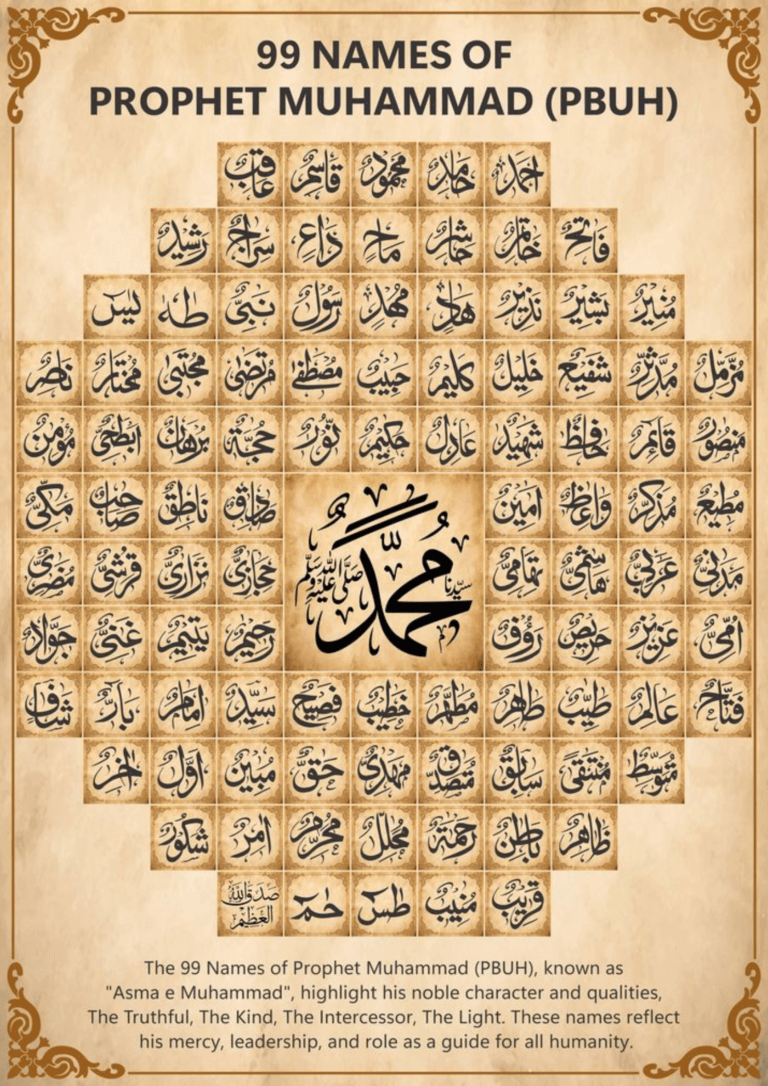 99 NAMES OF
PROPHET MUHAMMAD (PBUH)
احمد حامد محمود قاسم عاقب
فاتح خاتم حاشر ماح داع سراج رشيد
منير بشير نذير هاد مهد رسول نبي طه يس
مزمل مدثر شفيع خليل كليم حبيب مصطفى مرتضى مجتبى مختار ناصر
منصور قائم حافظ شهيد عادل حكيم نور حجة برهان ابطحى مؤمن
مطيع مذكر واعظ امين صادق ناطق صاحب مكى
سيدنا محمد صلى الله عليه وسلم
مدنى عربى هاشمى تهامى حجازى نزارى قرشى مضرى
امى عزيز حريص رؤوف رحيم يتيم غنى جواد
فتاح عالم طيب طاهر مطهر خطيب فصيح سيد امام بار شاف
متوسط سابق مهدى حق مبين اول اخر
ظاهر باطن رحمة محلل محرم امر شكور
قريب منيب طس حم صدق الله العظيم
The 99 Names of Prophet Muhammad (PBUH), known as
"Asma e Muhammad", highlight his noble character and qualities,
The Truthful, The Kind, The Intercessor, The Light. These names reflect
his mercy, leadership, and role as a guide for all humanity.